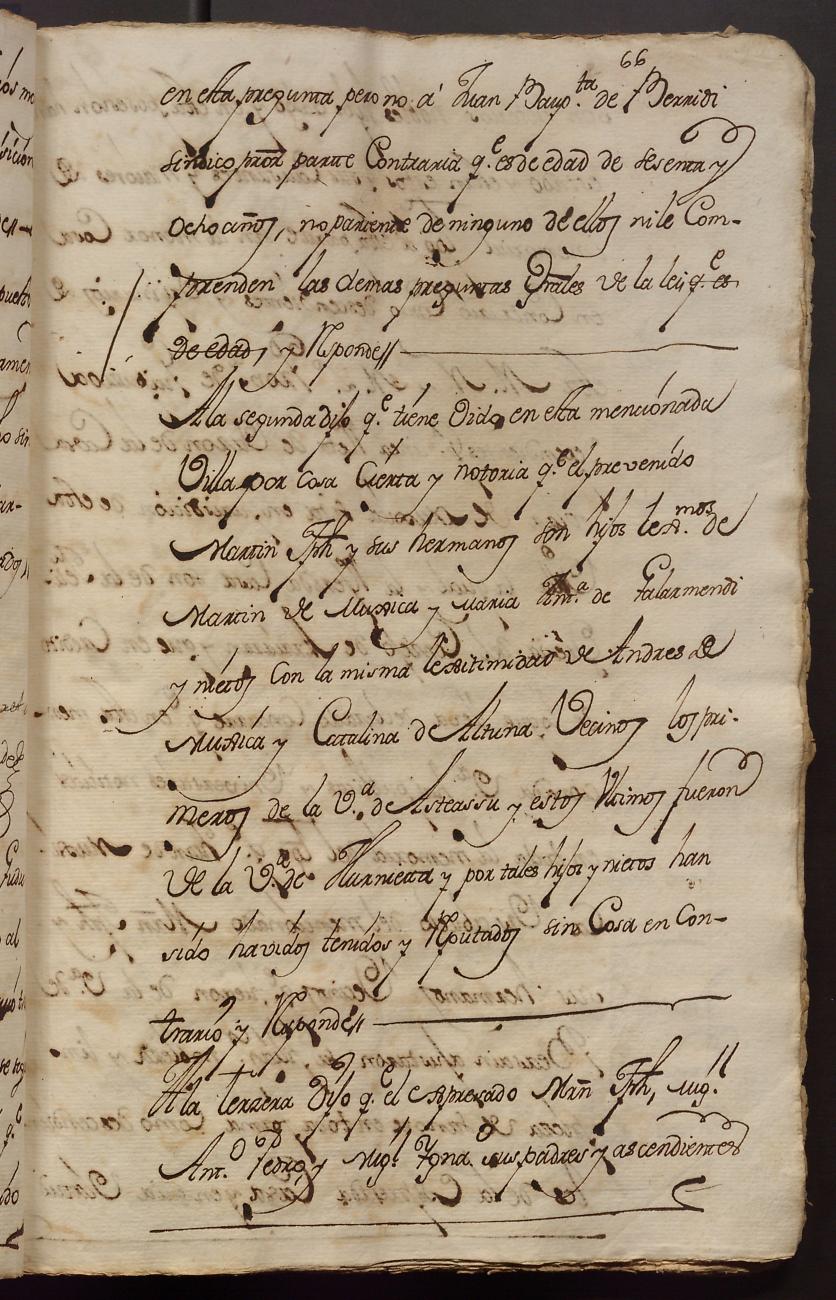 66
en esta pregunta pero no á Juan Bap.ta de Berridi
sindico pror parte Contraria q.e es de edad de sesenta y
Ocho años, no pariente de ninguno de ellos ni le Com-
prenden las demas preguntas Grales de la lei, q.e es
de edad, y Responde//
A la segunda dijo q.e tiene Oido en esta mencionada
Villa por Cosa Cierta y notoria q.e el prevenido
Martin Jph y sus hermanos son hijos lexmos de
Martin de Muxica y Maria Ant.a de Galarmendi
y nietos Con la misma lexitimidad de Andres de
Muxica y Catalina de Altuna Vecinos los pri-
meros de la V.a de Asteassu y estos Ultimos fueron
de la V.a de Hurnieta y por tales hijos y nietos han
sido havidos tenidos y Reputados sin Cosa en Con-
trario y Responde//
A la tercera Dijo q.e el expresado Mrn Jph, Mig.l
Ant.o Pedro, y Mig.l Ygna.o sus padres y ascendientes